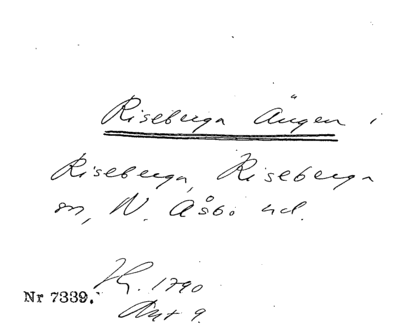 Riseberga Ängen i
Riseberga, Riseberga
sn, N. Åsbo hd.
Nr 7339. 1790
Akt 9.